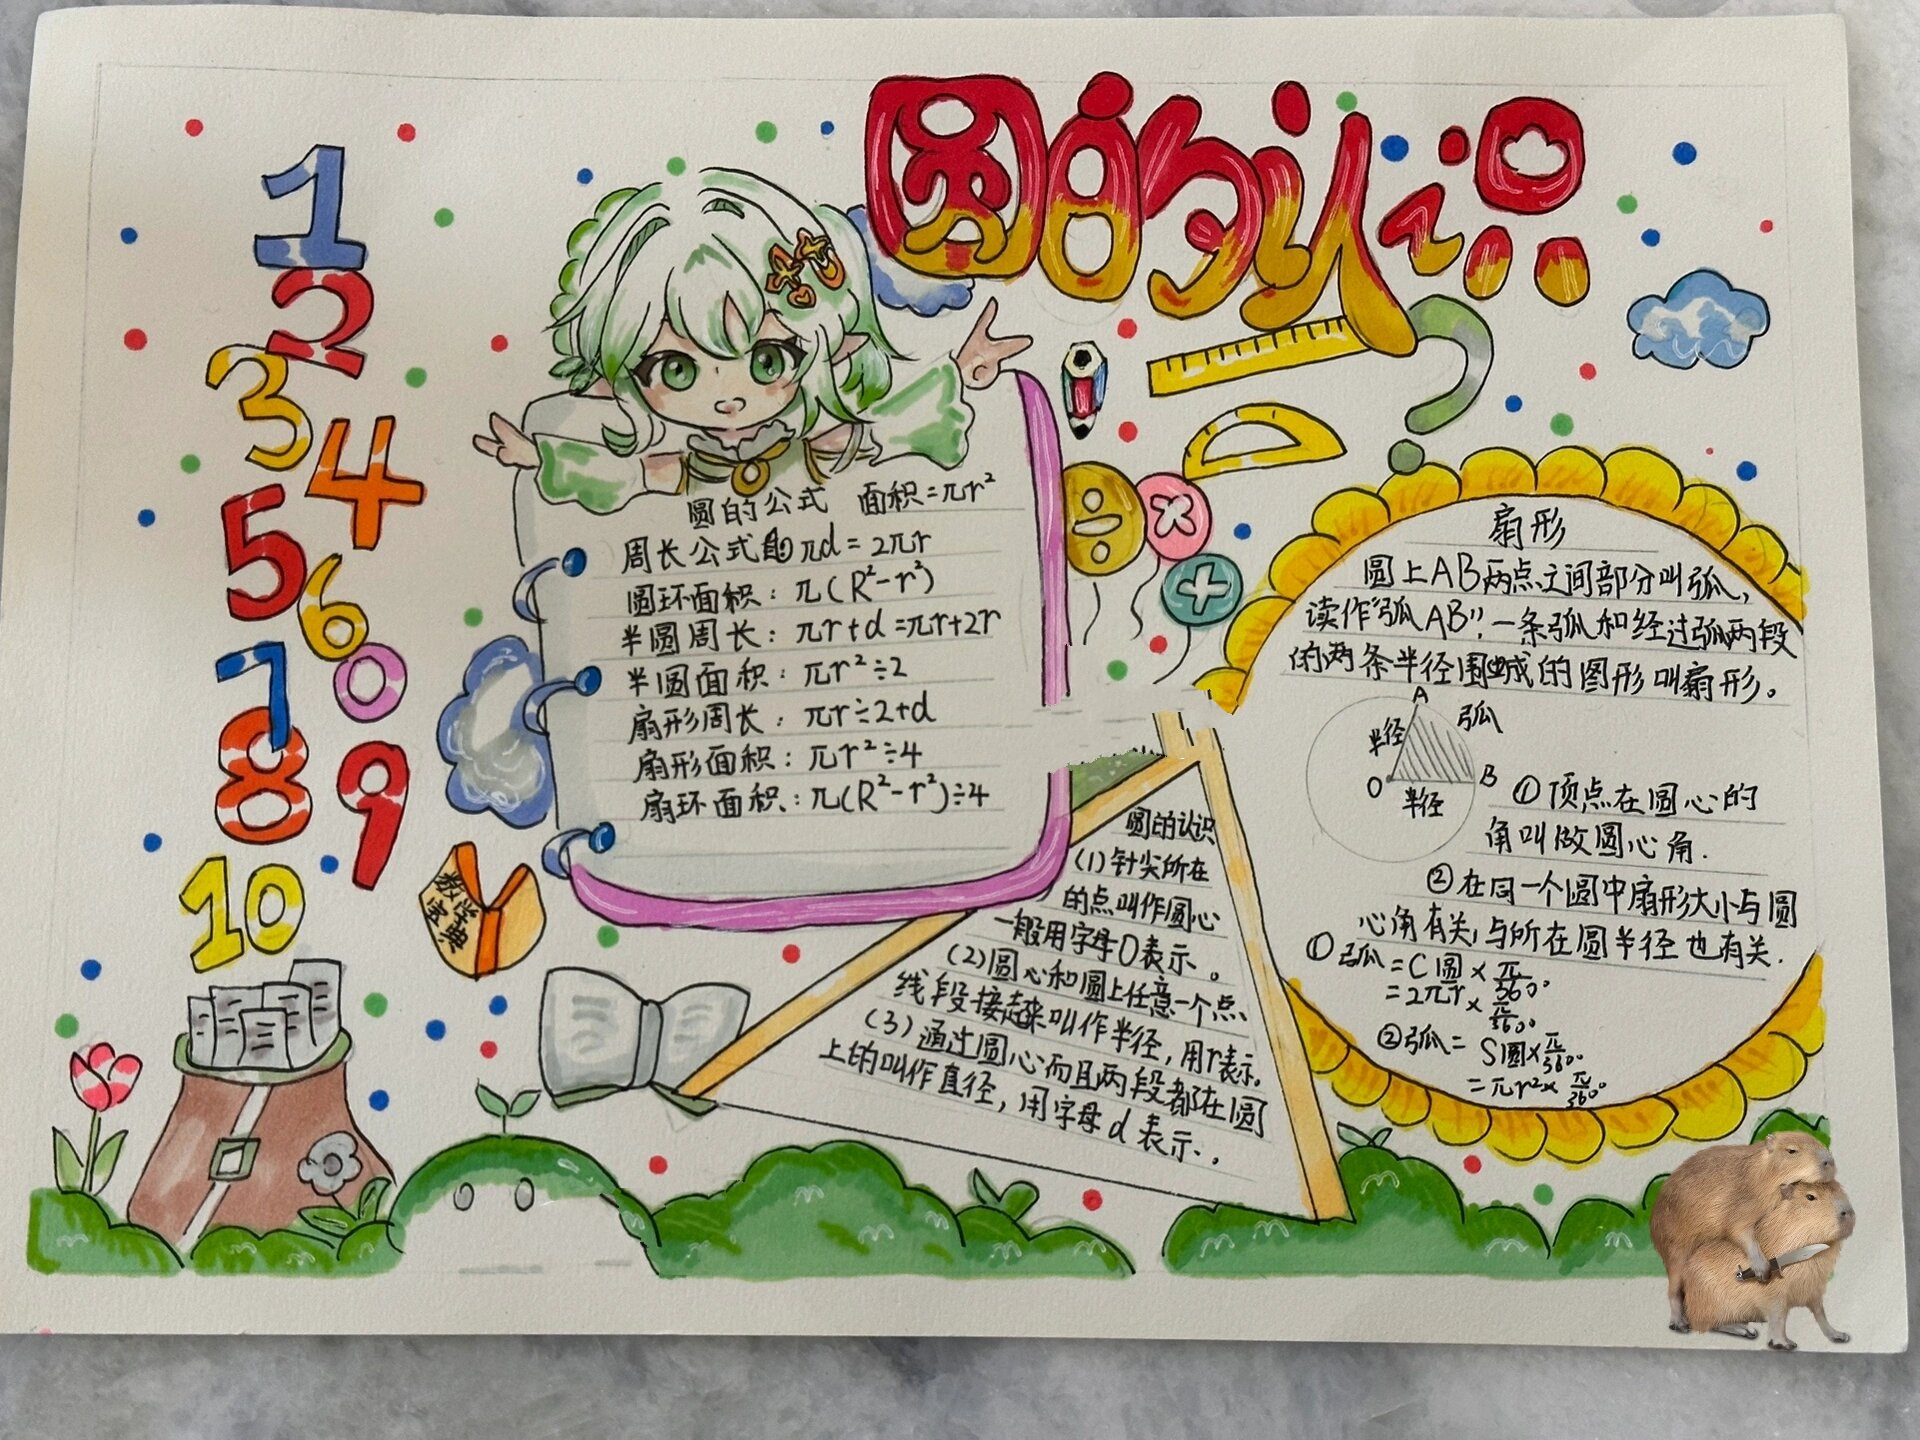 圆的认识
1
2
3
4
5
6
7
0
8
9
10
圆的公式 面积=πr²
周长公式 πd=2πr
圆环面积：π(R²-r²)
半圆周长：πr+d=πr+2r
半圆面积：πr²÷2
扇形周长：πr÷2+d
扇形面积：πr²÷4
扇环面积：π(R²-r²)÷4
÷
×
+
数学
圆的认识
(1)针尖所在
的点叫作圆心
一般用字母O表示。
(2)圆心和圆上任意一个点
线段接起来叫作半径，用r表示。
(3)通过圆心而且两段都在圆
上的叫作直径，用字母d表示.
扇形
圆上AB两点之间部分叫弧，
读作"弧AB"，一条弧和经过弧两段
的两条半径围城的图形叫扇形。
A
半径
弧
O
B
半径
①顶点在圆心的
角叫做圆心角.
②在同一个圆中扇形大小与圆
心角有关，与所在圆半径也有关.
①弧=C圆×π/360°
=2πr×π/360°
②弧=S圆×π/360°
=πr²×π/360°